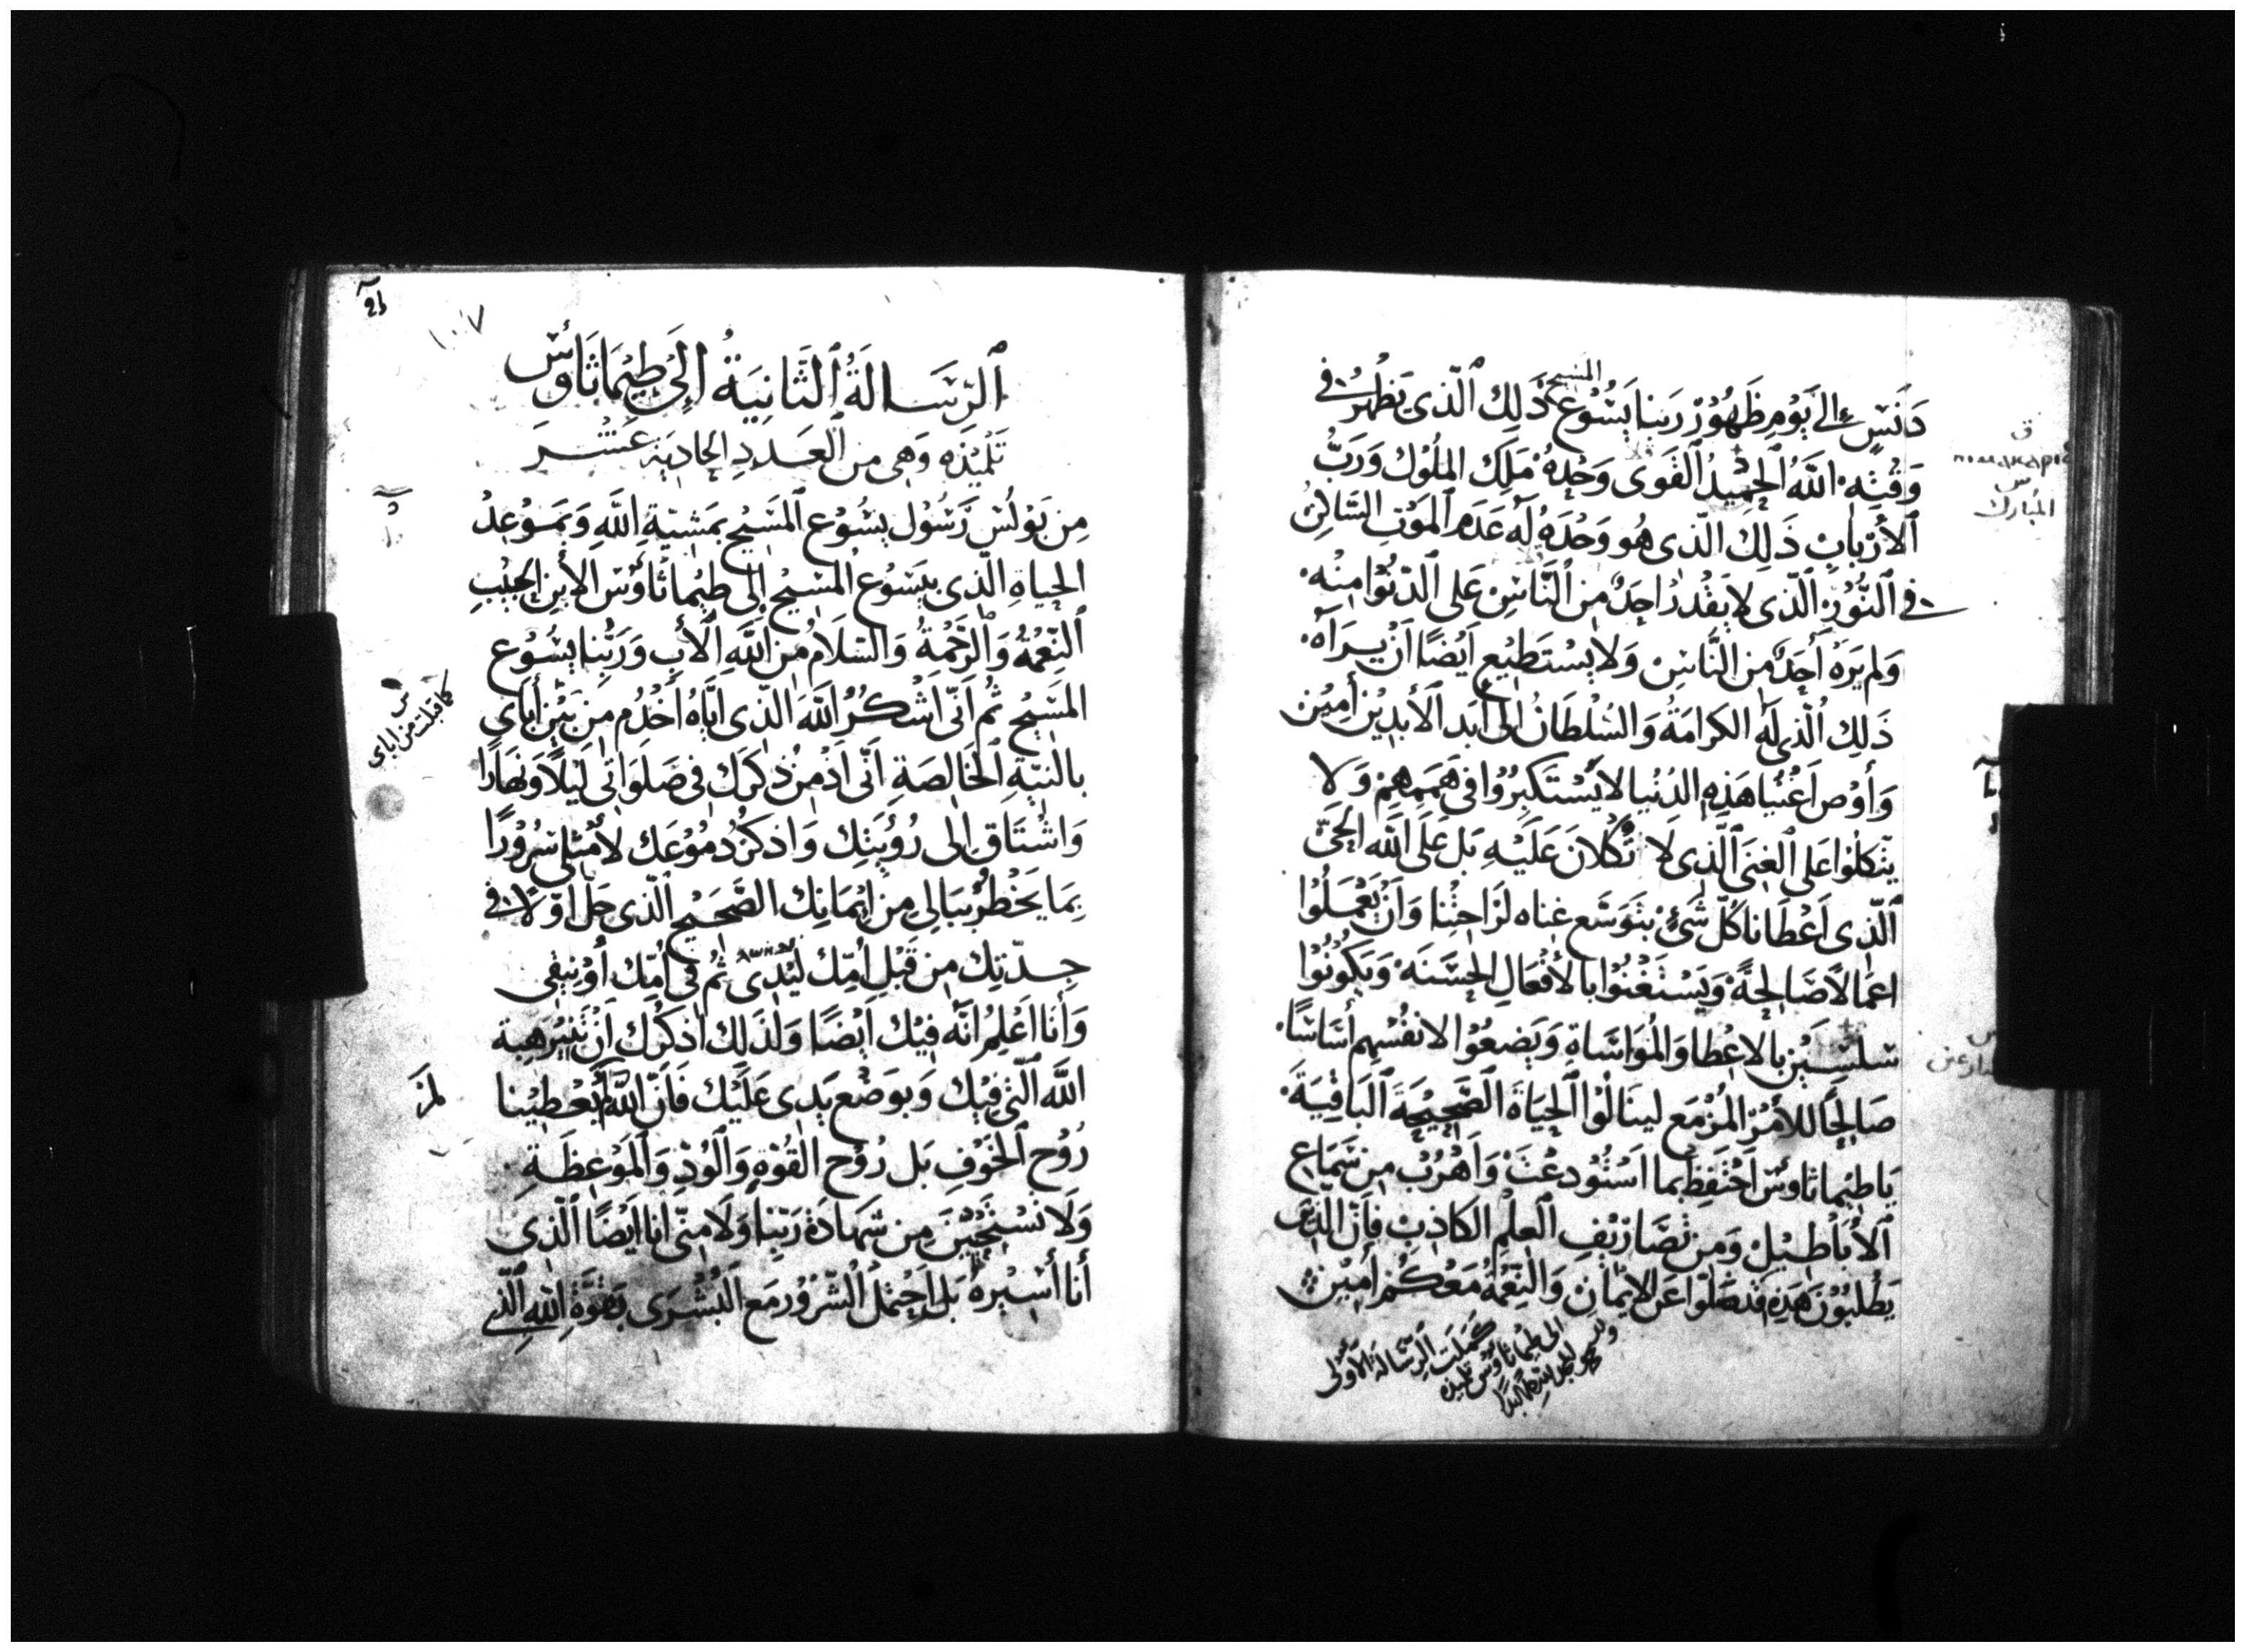 دَنَسٍ إلى يَوْمِ ظُهُوْرِ رَبِنا يَسُوْع المسيح ذَلِك ٱلّذى يَظْهَرُ فى
وَقْتِهِ اللهُ الحَمِيدُ ٱلقَوى وَحْدِهُ مَلِك المُلُوْك وَرَبُّ
ٱلأرْبابِ ذَلِك الّذى هُو وَحْدَهُ لَه عَدَم ٱلمَوْتِ السَّاكِنُ
فى ٱلنُّوْرِ ٱلّذى لا يَقْدِرُ احِدٌ مِن ٱلنَّاسِ عَلى ٱلدّنُوّا مِنْهُ
وَلم يَرَهُ أَحِدٌ مِن النَّاسِ وَلا يسْتَطِيْع أيْضًا أنْ يَرَاهُ
ذَلِك ٱلّذى لَهُ الكرامَةُ وَالسُلْطَانُ إلى أبَد ٱلأبدِيْن أمِيْن
وَأوْصِ اَغْنِيا هَذِهِ الدُنْيا لا يَسْتَكبِرُوْا فى هِمَمِهِمْ وَلا
يتّكلوا عَلى ٱلغِنَى ٱلّذى لا تُكلانَ عَلَيْهِ بَل عَلَى اللَّه الحَىّ
ٱلّذِى اَعْطَانا كُلَّ شَئٍ بِتَوَسّع غناه لرَاحِتْنا وَاَنْ يَعْمَلُوْا
اعمَالاً صَالِحَةً وَيَسْتَغْنُوْا بالأفْعَالِ الحَسَنَه وَيَكُوْنُوْا
سَلسِيْن بالاعْطَا وَالمُوَاسَاةِ وَيَضعُوْا لانفُسِهِم أسَاسًا
صَالِحًا للأمْرِ المُزْمَع لينَالُوْا ٱلحَيَاةَ ٱلصَّحِيْحَةَ ٱلبَاقِيَةَ
يَا طِيْماثاوس اَحْتَفِظ بما اسْتُوْدِعْتَ وَاَهْرُبْ مِن سَمَاعِ
ٱلأَبَاطِيْل وَمِن تَصَاريْفِ ٱلعِلْمِ الكَاذِبِ فَاِنّ الذين
يَطْلِبُوْنَ هَذِهِ قَد ضَلّوا عَن الايْمَانِ وَالنِعْمَةُ مَعَكُمْ أمِيْن
كَمَلَت الرّسَالة الأولى
الى طِيْماثاوُس تلميذه
ق
المبارك
ٱلرّسَالَةُ ٱلثَّانِيَةُ إلى طِيْمَاثَاوُس
تَلْمِيْذِهِ وَهِى مِن ٱلعَدَدِ الحادِيَة عَشَر
مِن بَوْلُسَ رَسُوْل يسُوْع ٱلمَسِيْح بمَشِيّةِ اللَّهِ وَبمَوْعِدْ
الحياةِ الّذى بيَسُوْع المَسِيْح إلى طِيْماثاوُس الأبنِ الحَبِيْبِ
ٱلنّعْمَةُ وَٱلرَّحْمَةُ وَالسَّلَامُ مِنَ اللَّهِ ٱلأبِ وَرَبِّنا يسُوْع
المَسِيْح ثُم اَنّى اَشْكُرُ اللَّه الّذِى ايّاهُ اَخْدُم مِن بَيْن أبَاى
بالنيّةِ ٱلخَالصَةِ اَنّى اَدْمِنُ ذِكرَك فى صَلَوَاتى لَيْلاً وَنَهارًا
وَاشْتَاق إلى رُؤيَتِك وَاذكرُ دُمُوْعَك لأمْتلى سُرُوْرًا
بِمَا يَخْطُرُ ببَالى مِن اِيْمَانِك الصَّحِيْح الّذى حَلّ اوّلاً فى
جِدّتِك مِن قَبْلِ اُمّك لَيْدِى ثُم فى اُمّك اُوْنِيقى
وَأنا اَعْلَمُ انَّه فِيْك اَيْضًا وَلذَلِك اُذكرُك اَنْ تنير هِبة
اللَّه الّتى فِيْك وَبوَضْع يَدِى عَلَيْك فَاِنّ اللَّه لم يُعْطِيْنا
رُوْح ٱلخَوْفِ بَل رُوْح القُوّةِ وَٱلوُدّ وَٱلمَوْعِظَةِ
وَلا تَسْتَحْيَنَّ مِن شَهادَة رَبّنِا وَلا مِنّى انا اَيْضًا ٱلّذِى
أنا أسِيْرهُ بَل اَحْتَمل ٱلشّرُوْر مَع ٱلبُشْرَى بقُوّةِ اللَّهِ الّذى
١٠٧
كما قبلت من اباى